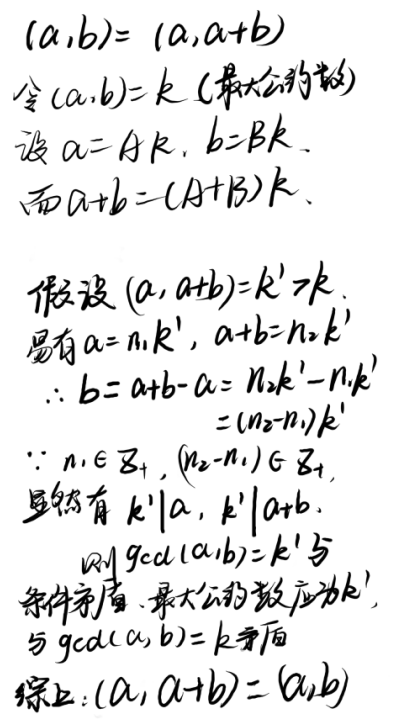 (a,b)= (a,a+b)
令(a,b)=k (最大公约数)
设 a=Ak. b=Bk.
而a+b=(A+B)k.
假设 (a, a+b)=k'>k.
易有a=n₁k', a+b=n₂k'
∴ b=a+b-a=n₂k'-n₁k'
=(n₂-n₁)k'
∵ n₁∈Z₊, (n₂-n₁)∈Z₊,
显然有 k'|a, k'|a+b.
则gcd(a,b)=k'与
条件矛盾、最大公约数应为k',
与gcd(a,b)=k矛盾
综上:(a,a+b)=(a,b)